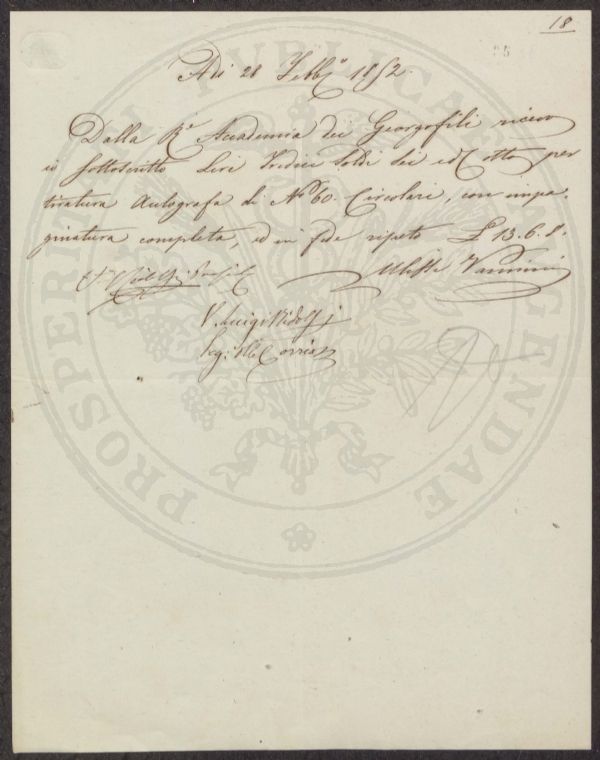 18
Adi 28 Febb.º 1852.
Dalla R.ª Accademia dei Georgofili ricevo
io sottoscritto Lire Tredici soldi sei ed Otto per
tiratura Autografa di Nº 60. Circolari, con impa-
ginatura completa, ed in fede ripeto £ 13.6.8.
Vannini
V. Luigi Ridolfi
Seg:
PROSPERITATI PUBLICAE AUGENDAE